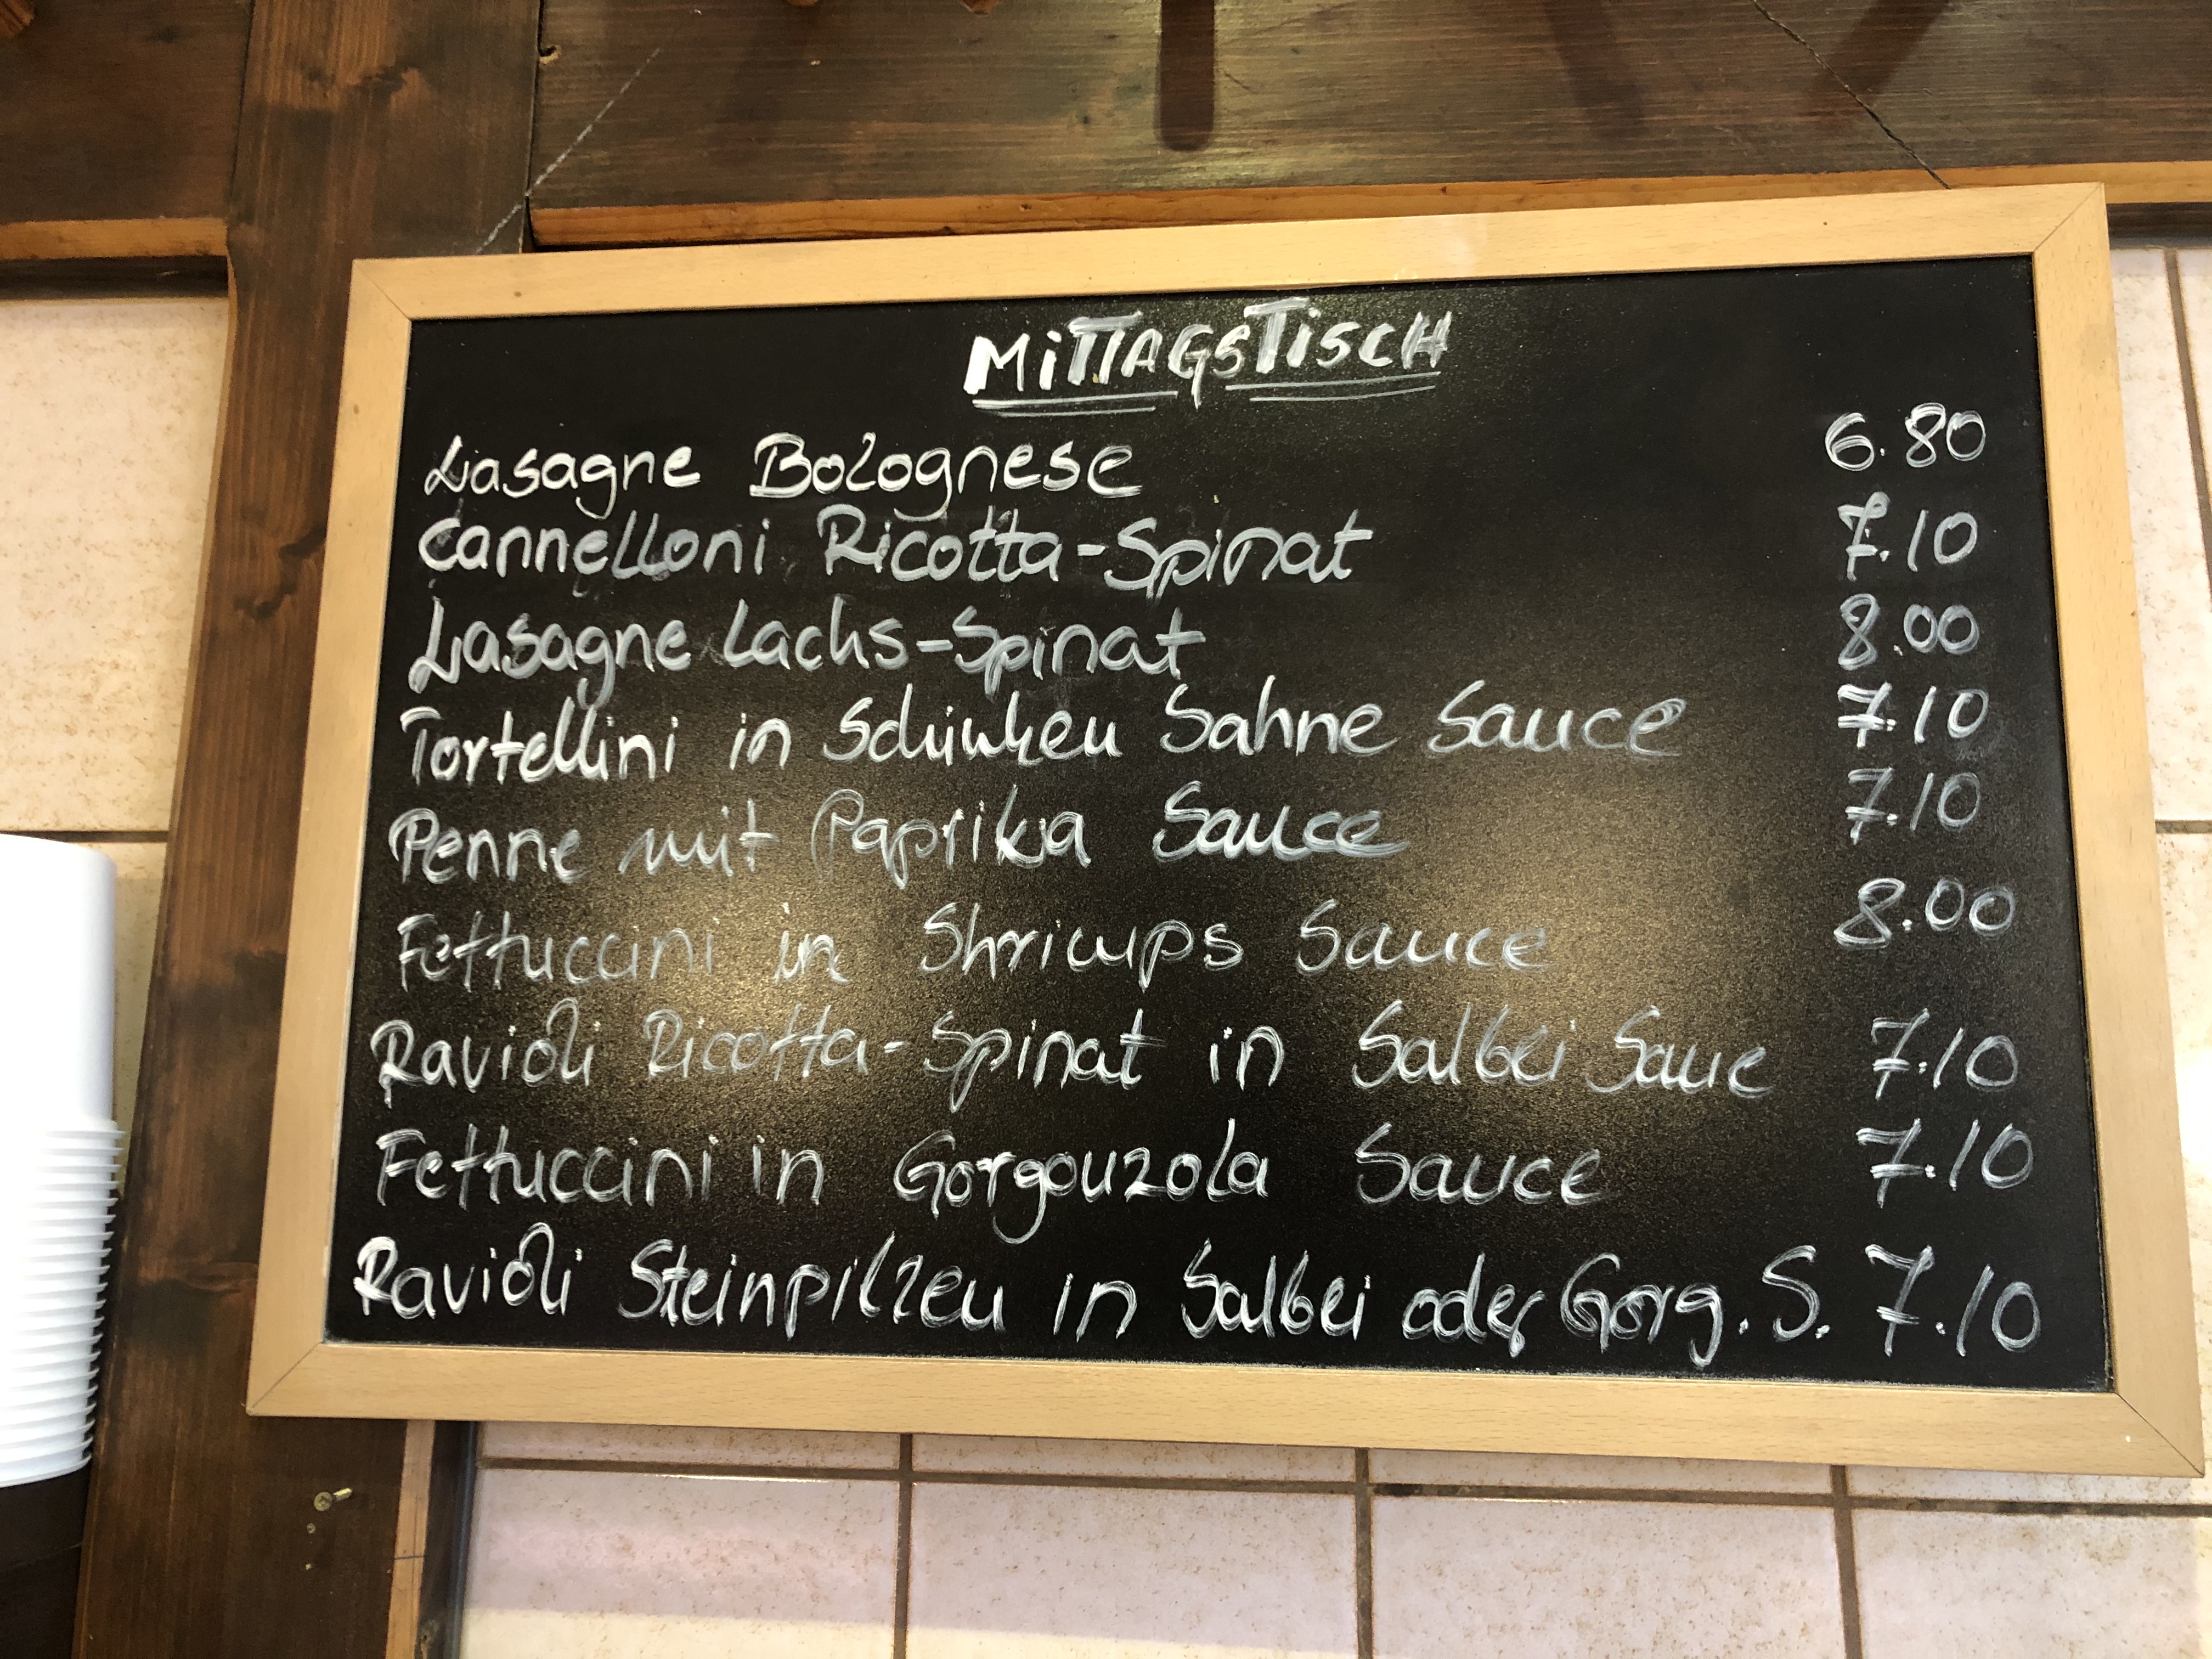 MiTTAGSTiSCH
Lasagne Bolognese 6.80
Cannelloni Ricotta-Spinat 7.10
Lasagne Lachs-Spinat 8.00
Tortellini in Schinken Sahne Sauce 7.10
Penne mit Paprika Sauce 7.10
Fettuccini in Shrimps Sauce 8.00
Ravioli Ricotta-Spinat in Salbei Sauce 7.10
Fettuccini in Gorgonzola Sauce 7.10
Ravioli Steinpilzen in Salbei oder Gorg. S. 7.10